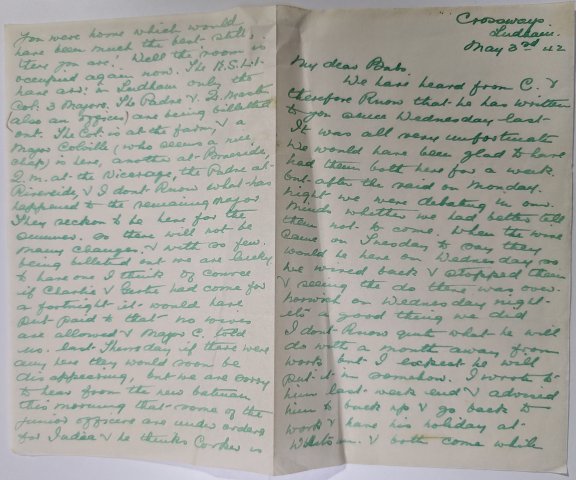 Crossways
Ludham.
May 3rd 42
My dear Babs.
We have heard from C. &
therefore know that he has written
to you since Wednesday last.
It was all very unfortunate
We would have been glad to have
had them both here for a week.
but after the raid on Monday.
night we were debating in our
minds whether we had better tell
them not to come. When the wire
came on Tuesday to say they
would be here on Wednesday so
we wired back & stopped them
& seeing the do there was over
Norwich on Wednesday night
it's a good thing we did
I don't know quite what he will
do with a month away from
work but I expect he will
put it in somehow. I wrote to
him last week end & advised
him to buck up & go back to
work & have his holiday at
& both come while
you were home which would
have been much the best still
there you are. Well the room is
occupied again now. The
have arr: in Ludham only the
Col: 3 Majors. The Padre &
(also an officer) are being billetted
out. The Col: is at the farm, & a
Major Colville (who seems a nice
chap) is here, another at
Q.M. at the Vicarage, the Padre at
Riverside, & I dont know what has
happened to the remaining Major
They reckon to be here for the
summer. So there will not be
many changes. & with so few
being billeted out we are lucky
to have one I think. Of course
if Charlie & had come for
a fortnight it would have
put paid to that no wives
are allowed & Major C. told
us. last Thursday if there were
any here they would soon be
disappearing, but we are sorry
to hear from the new batman
this morning that some of the
junior officers are under orders
for India & he thinks is